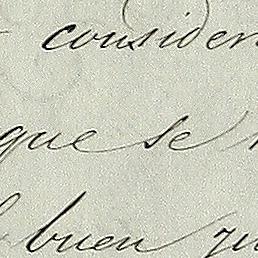 consider
que se
buen